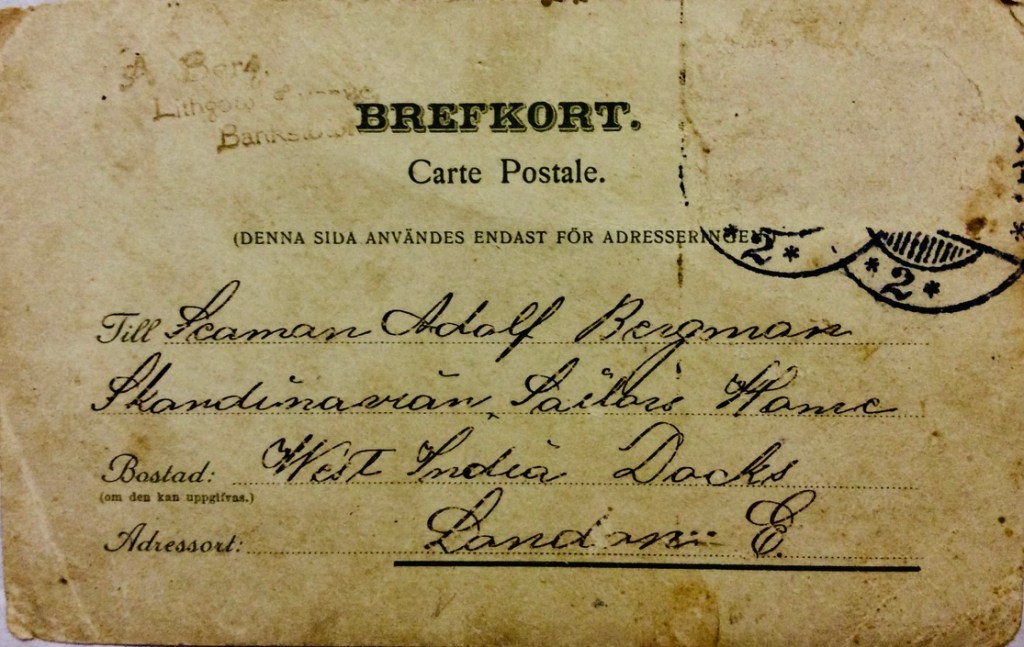 A Berg.
Lithgow
Bankstown
BREFKORT.
Carte Postale.
(DENNA SIDA ANVÄNDES ENDAST FÖR ADRESSERINGEN)
2 * * 2 *
Till Seaman Adolf Bergman
Skandinavian Sailors Home
Bostad: West India Docks
(om den kan uppgifvas.)
Adressort: London E.